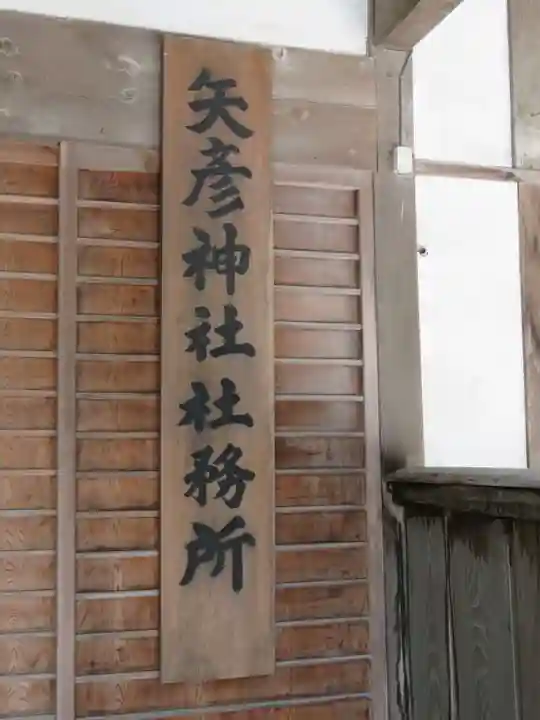 矢彦神社社務所